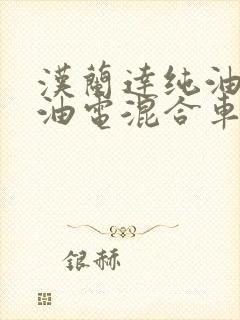 漢蘭達纯油
油電混合車
銀赫